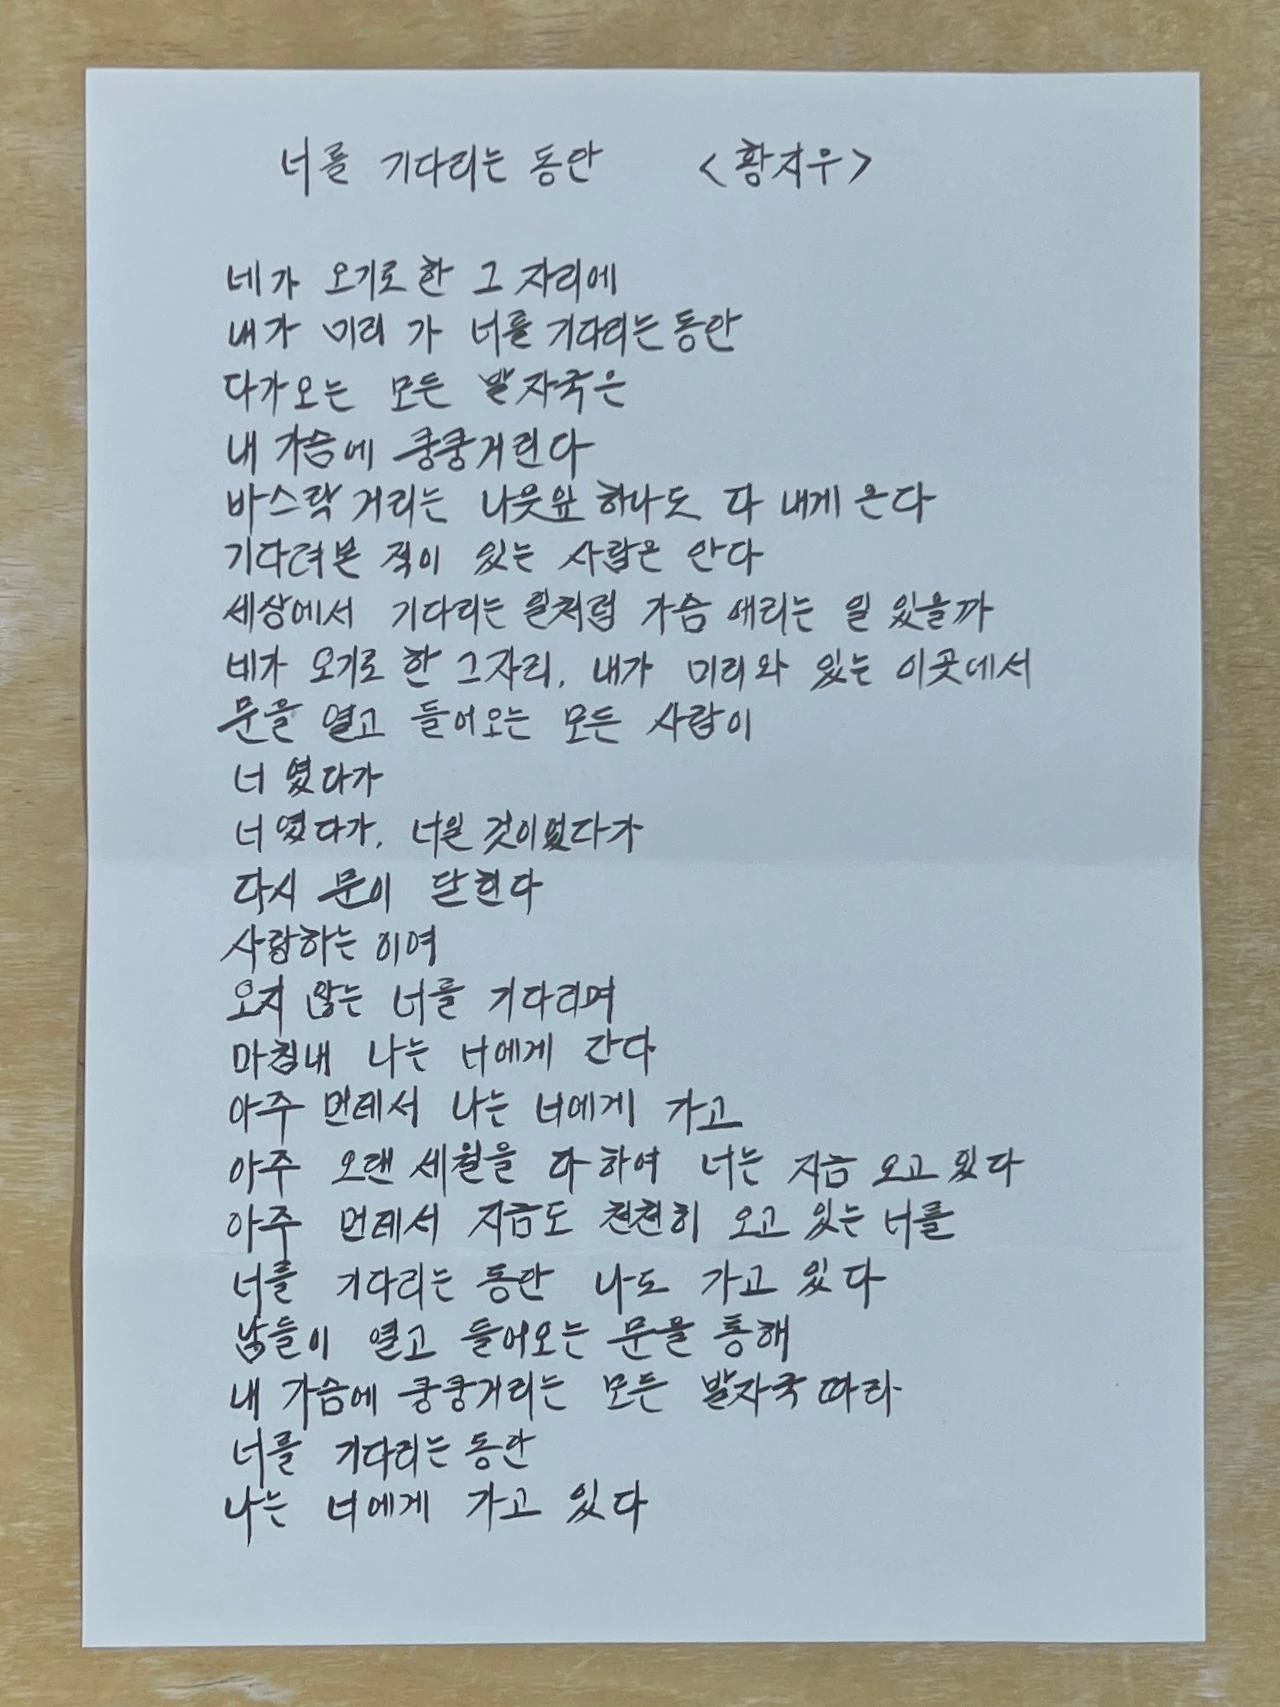 너를 기다리는 동안 <황지우>
네가 오기로 한 그 자리에
내가 미리 가 너를 기다리는 동안
다가오는 모든 발자국은
내 가슴에 쿵쿵거린다
바스락 거리는 나뭇잎 하나도 다 내게 온다
기다려본 적이 있는 사람은 안다
세상에서 기다리는 일처럼 가슴 애리는 일 있을까
네가 오기로 한 그자리, 내가 미리와 있는 이곳에서
문을 열고 들어오는 모든 사람이
너 였다가
너였다가, 너일 것이었다가
다시 문이 닫힌다
사랑하는 이여
오지 않는 너를 기다리며
마침내 나는 너에게 간다
아주 먼데서 나는 너에게 가고
아주 오랜 세월을 다하여 너는 지금 오고 있다
아주 먼데서 지금도 천천히 오고 있는 너를
너를 기다리는 동안 나도 가고 있다
남들이 열고 들어오는 문을 통해
내 가슴에 쿵쿵거리는 모든 발자국 따라
너를 기다리는 동안
나는 너에게 가고 있다